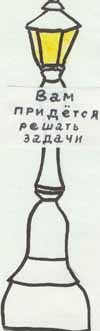 Вам
придётся
решать
задачи